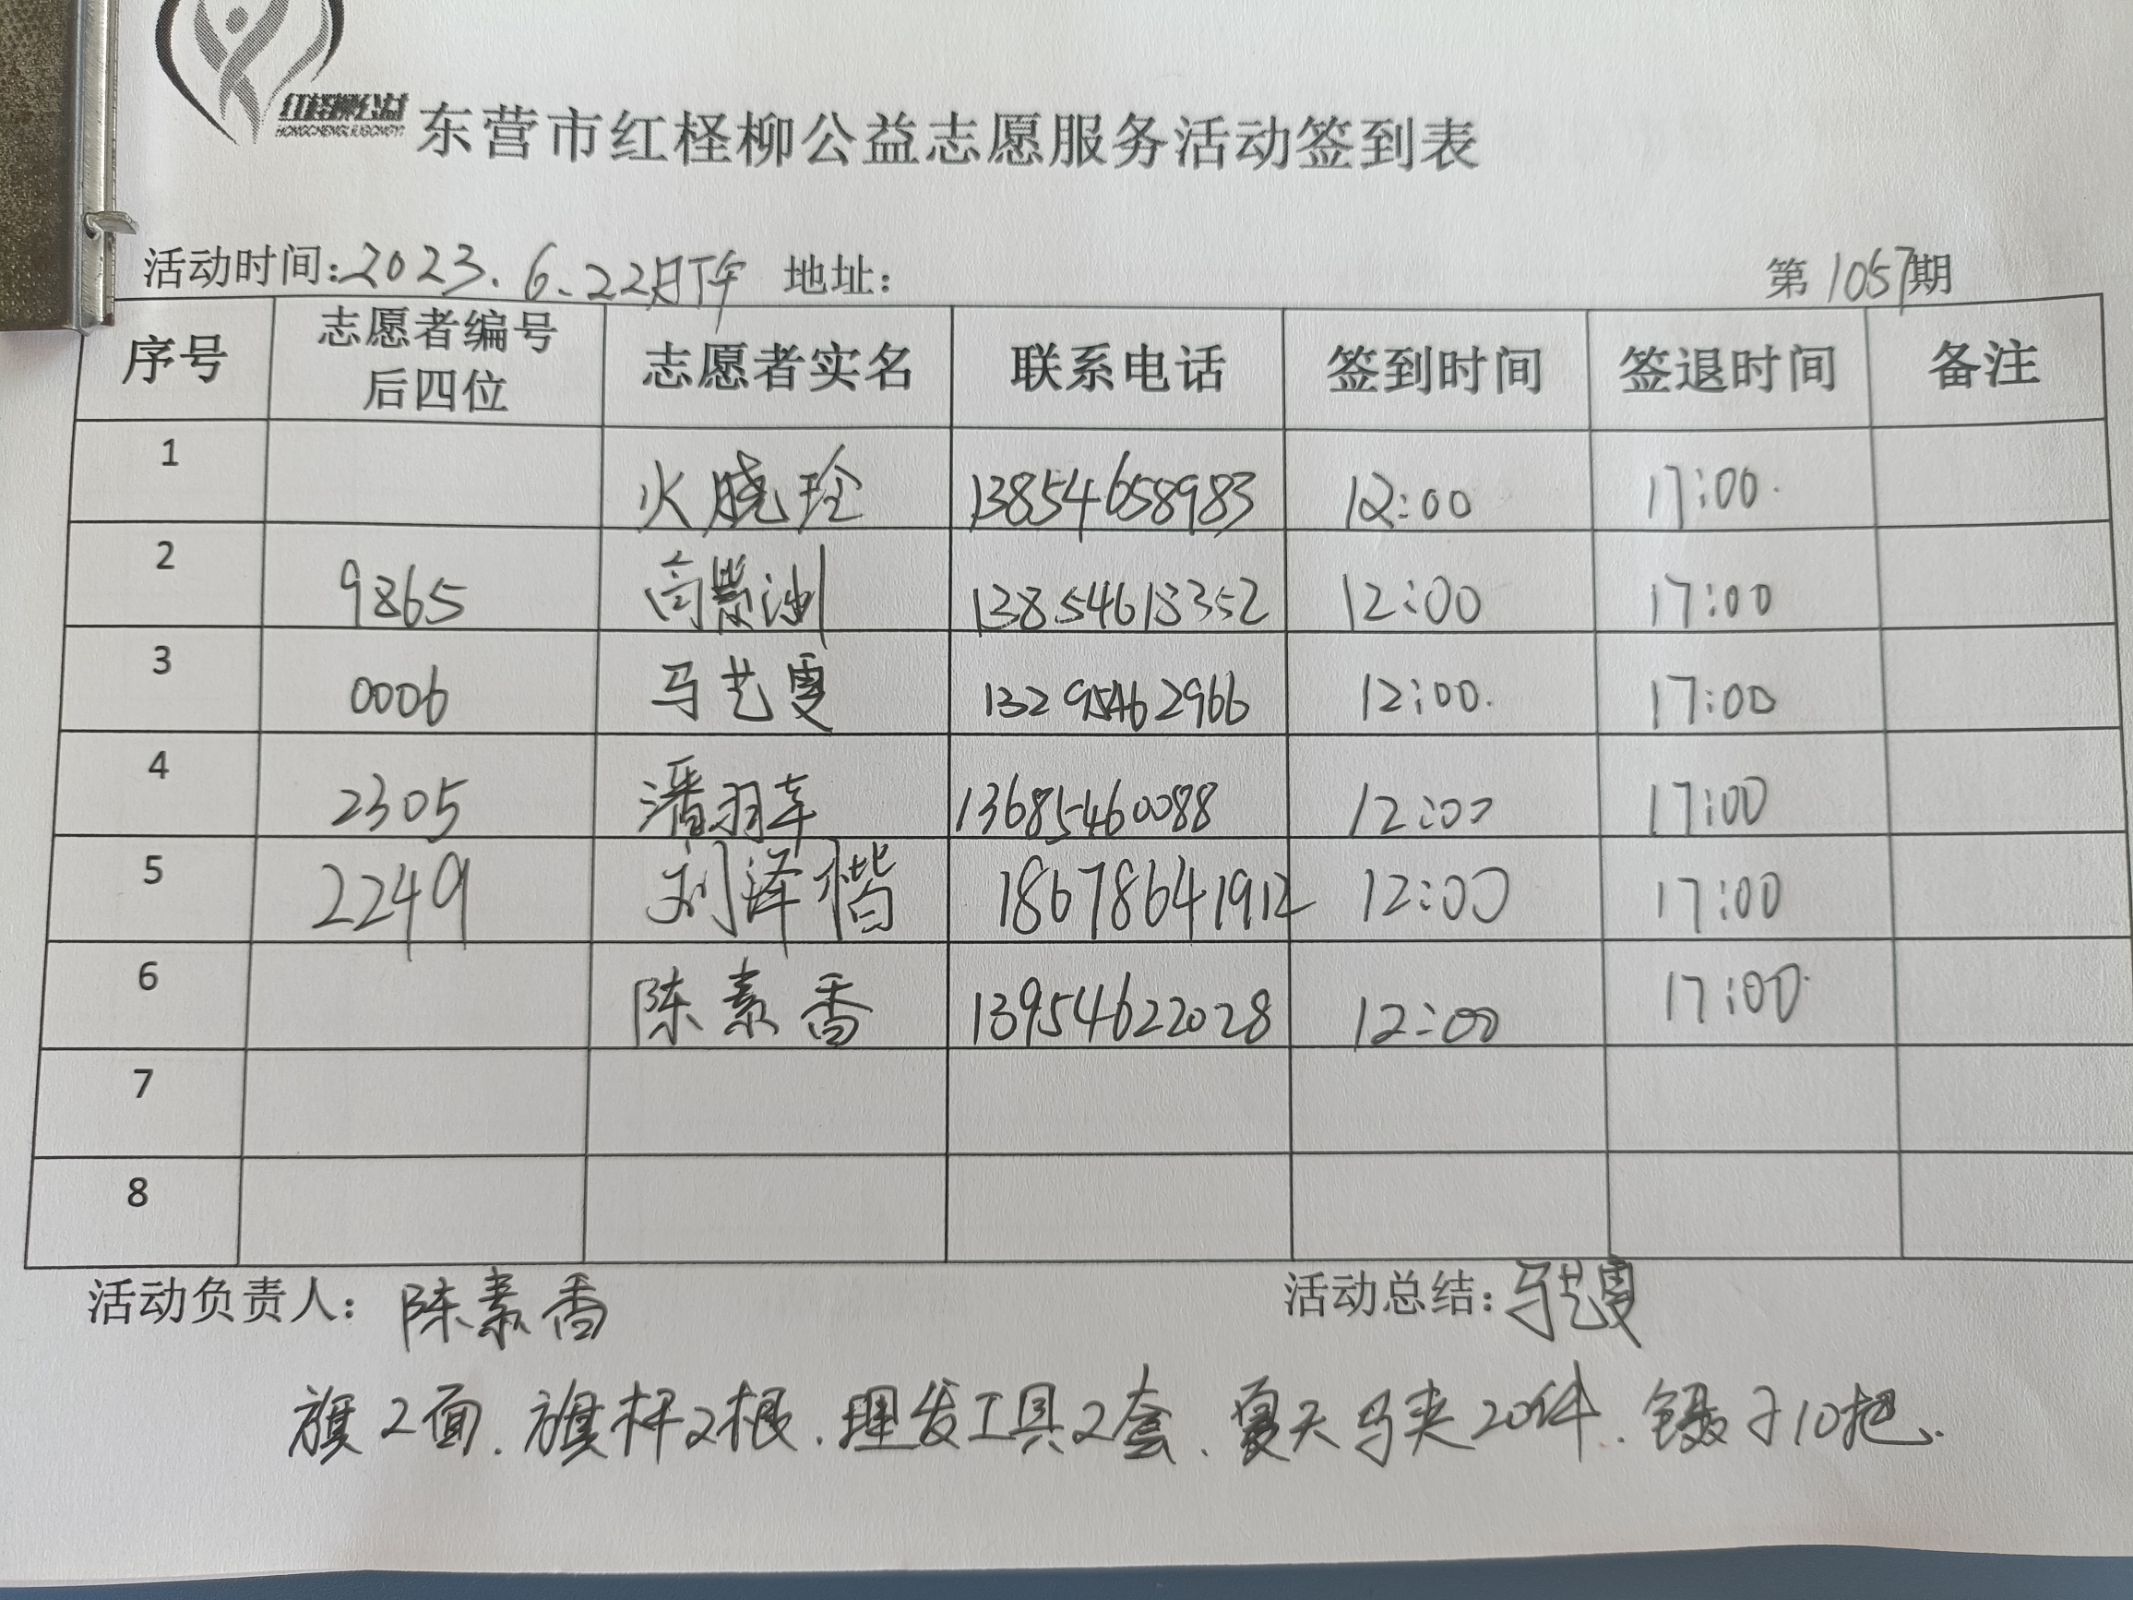 红柽柳公益
HONGCHENGLIUGONGYI
东营市红柽柳公益志愿服务活动签到表
活动时间:2023.6.22日下午 地址: 第1057期
序号 志愿者编号后四位 志愿者实名 联系电话 签到时间 签退时间 备注
1 火晓玲 13854658983 12:00 17:00
2 9865 高 13854613352 12:00 17:00
3 0006 马艺 13295462966 12:00 17:00
4 2305 潘羽 13685460088 12:00 17:00
5 2249 刘泽楷 18678641912 12:00 17:00
6 陈素香 13954622028 12:00 17:00
7
8
活动负责人: 陈素香 活动总结: 马艺
旗2面、旗杆2根、理发工具2套、夏天马夹20件、镊子10把.